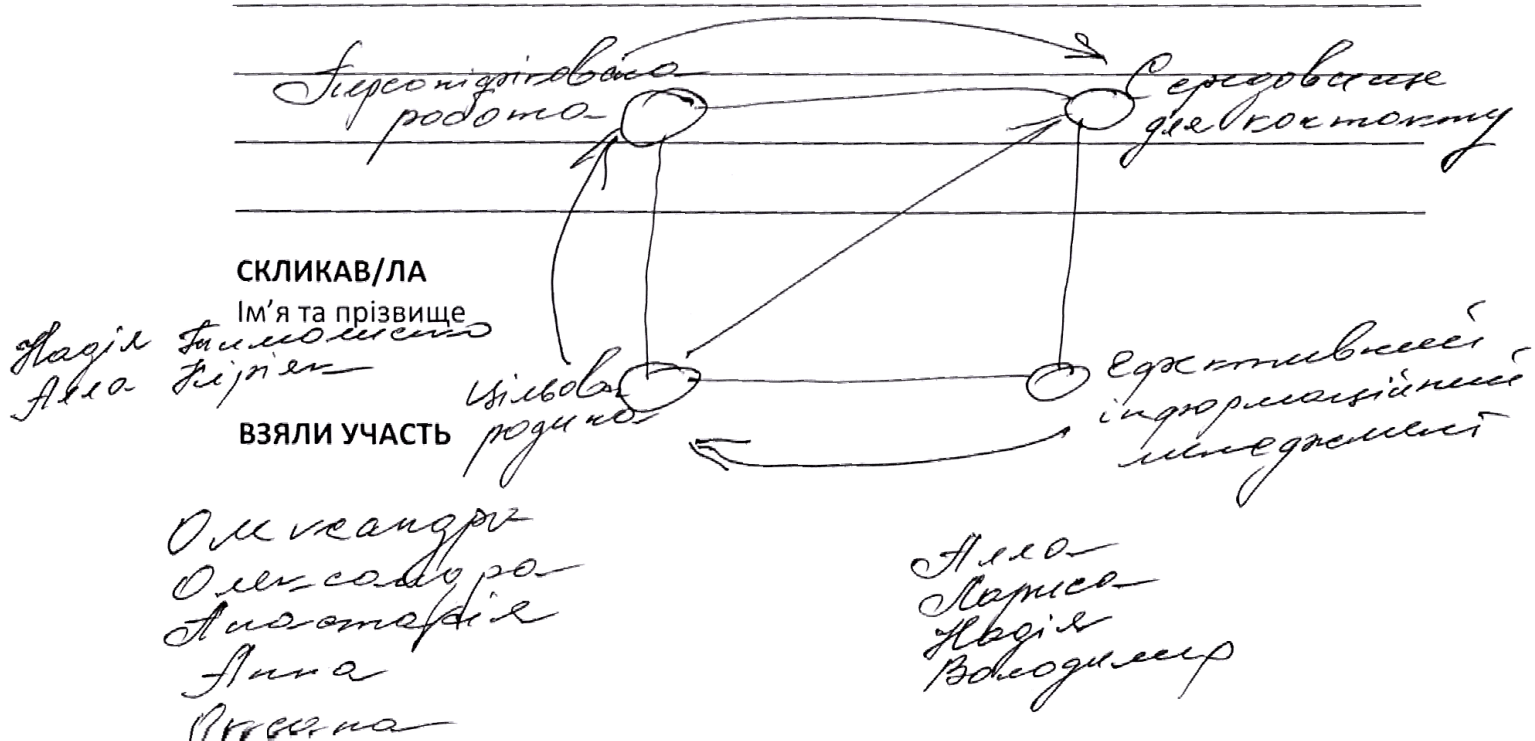 Персоніфікована
робота
Середовище
для контакту
СКЛИКАВ/ЛА
Ім'я та прізвище
Надія Тимошенко
Алла Кіріяк
цільова
родина
Ефективний
інформаційний
менеджмент
ВЗЯЛИ УЧАСТЬ
Олександра
Олександра
Анастасія
Анна
Оксана
Алла
Лариса
Надія
Володимир